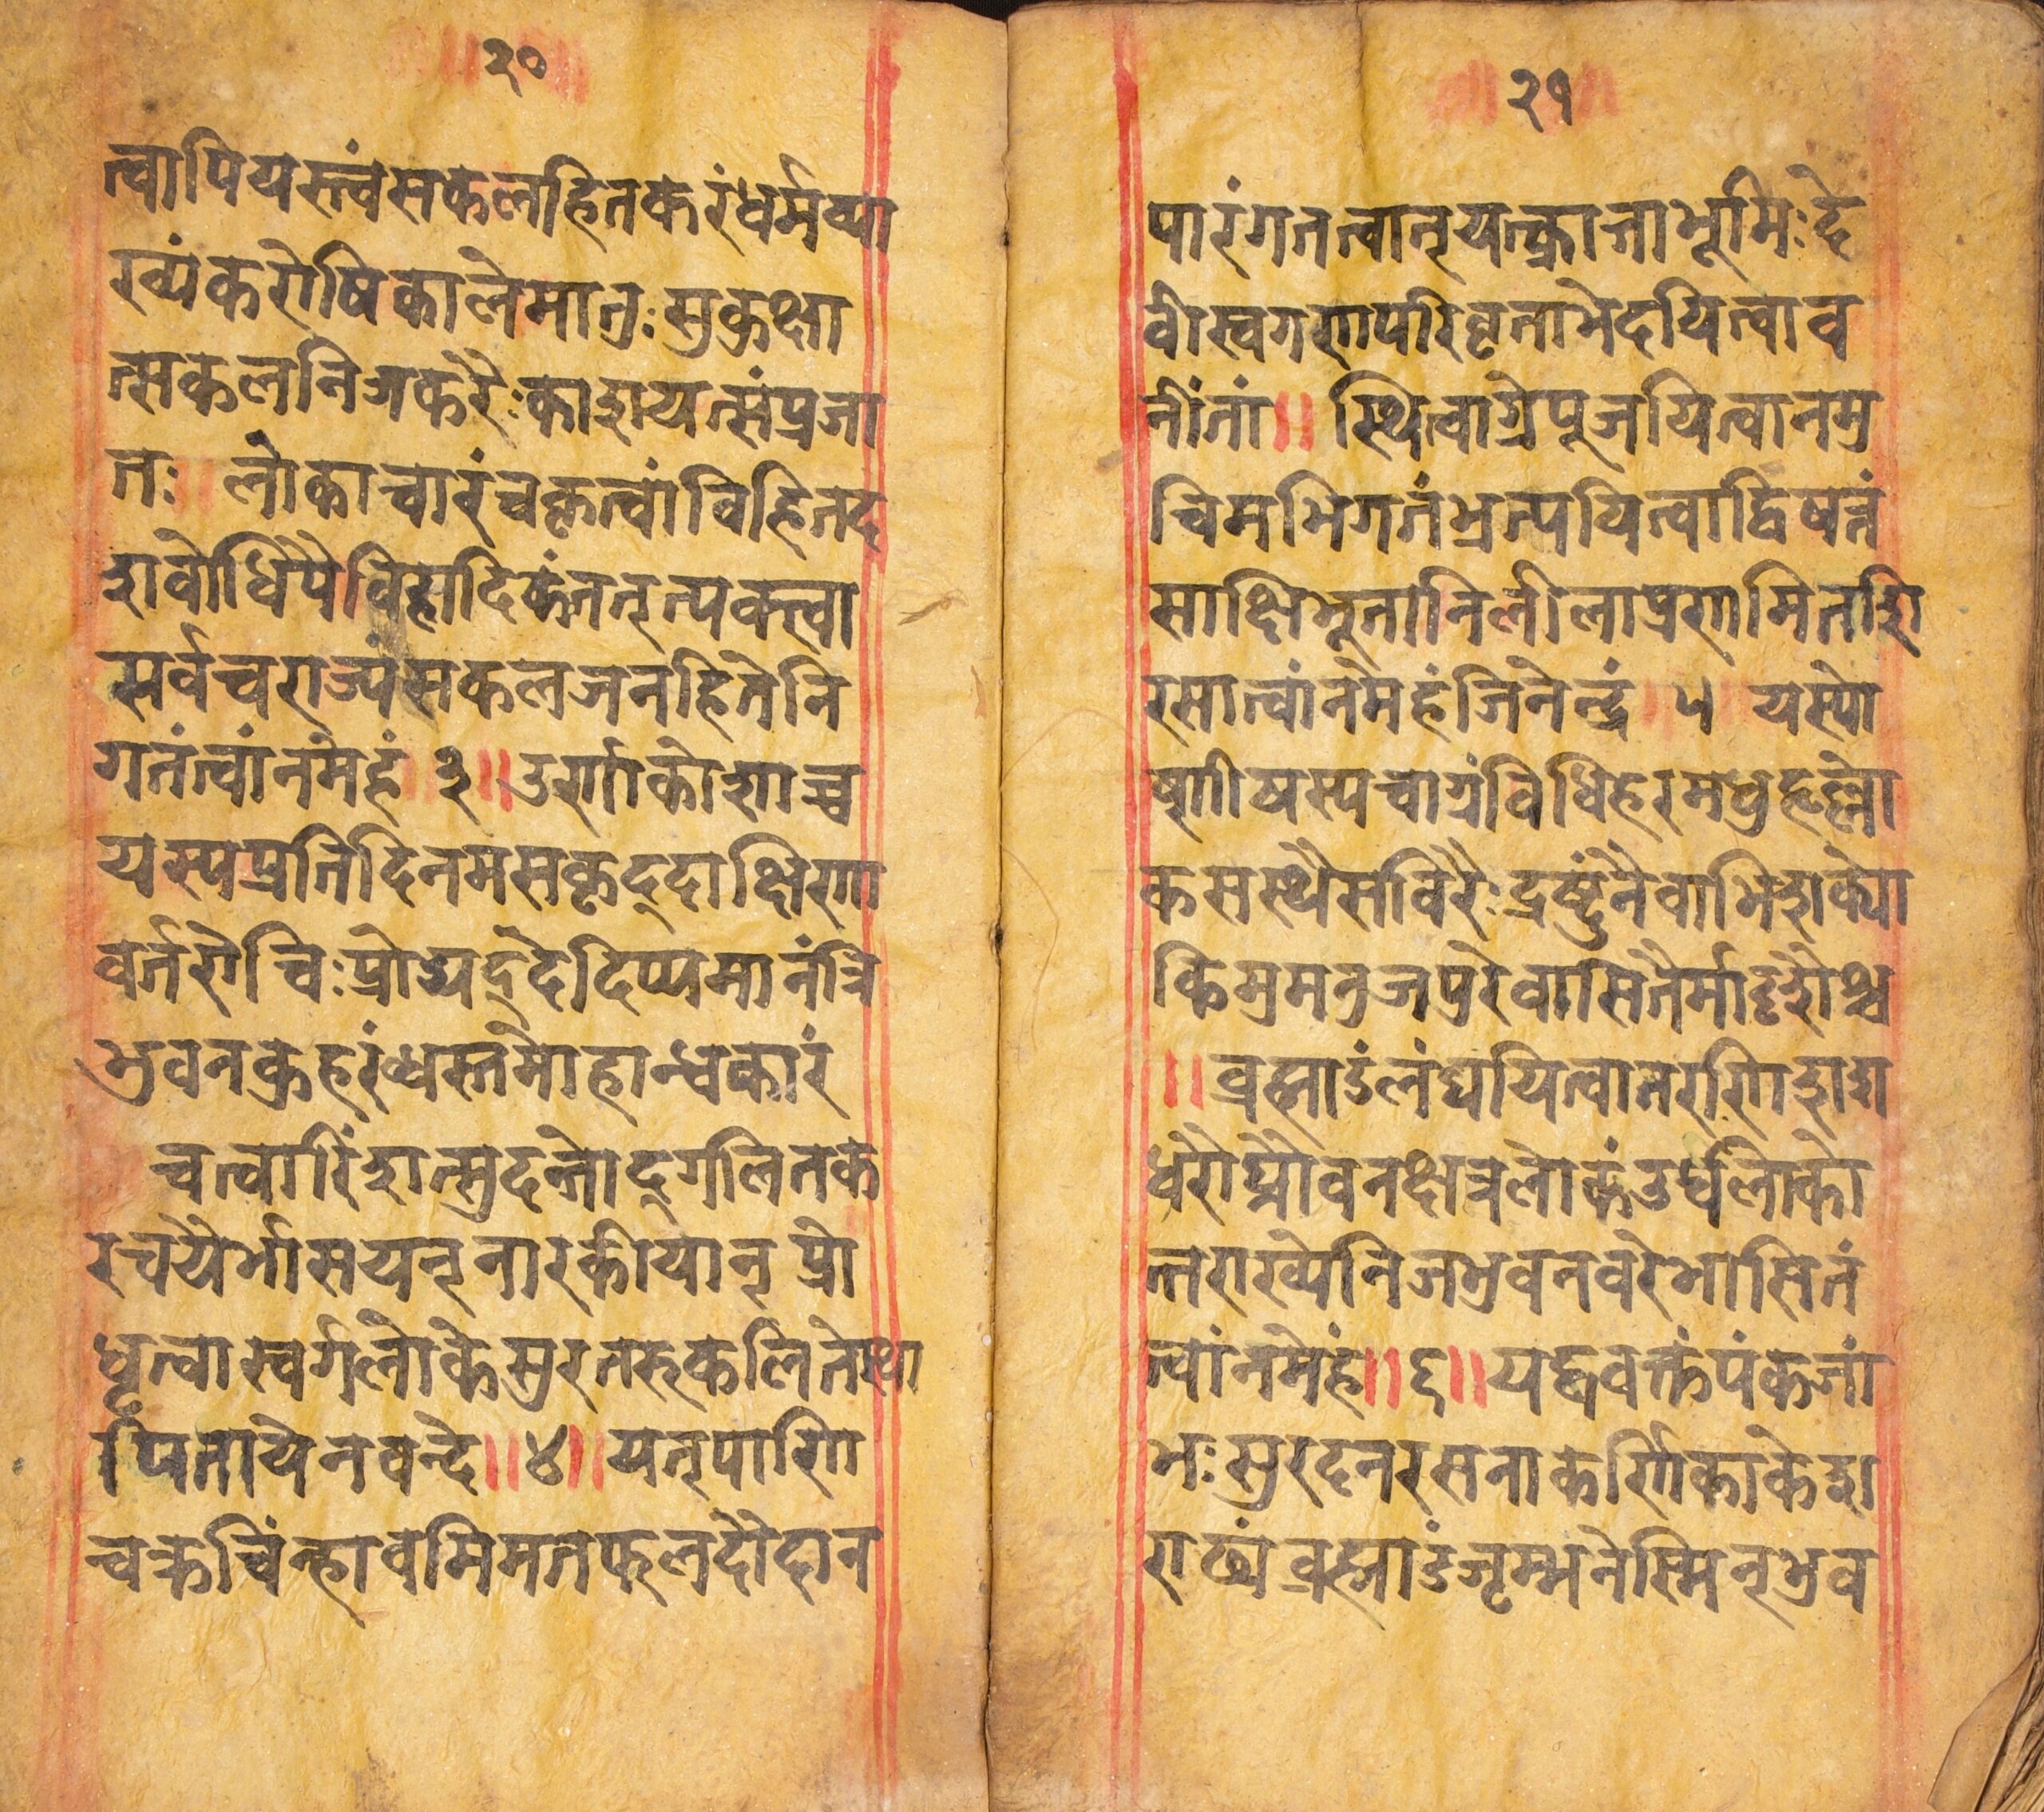 २०
त्वापियस्त्वंसकलहितकरंधर्मव्या
ख्यंकरोषिकालेमातुःसुकुक्षा
त्सकलनिजकरैःकाशयत्संप्रजा
तः॥ लोकाचारंचकृत्वांविहितद
शवोधिपैविहादिकंतत्न्त्यक्त्वा
सर्वंचराज्यंसकलजनहितेनि
गतंत्वांनमेहं॥३॥उर्णाकोशाच्च
यस्यप्रतिदिनमसकृद्दाक्षिणा
वर्तरोचिःप्रोद्यद्देदिप्यमानंत्रि
भुवनकुहरंध्वस्तमोहान्धकारं
चत्वारिंशत्सुदन्तोद्गलितक
रचयैर्भासयन्नारकीयान्प्रो
धृत्वास्वर्गलोकेसुरतरुकलितेस्था
पितायेनवन्दे॥४॥यत्पाणि
चक्रचिंन्हावभिमतफलदौदान
२१
पारंगतत्वान्यत्क्रान्ताभूमिःदे
वीस्वगणपरिवृताभेदयित्वाव
नींतां॥स्थित्वाग्रेपूजयित्वानमु
चिमभिगतंभ्रत्पयित्वाद्विषन्तं
साक्षिभूतानिलीलाप्रणमितशि
रसात्वांनमेहंजिनेन्द्रं॥५॥यस्यो
ष्णीषस्यचाग्रंविधिहरमघुहृल्लो
कसस्थैसविरैःद्रष्टुंनैवाभिशक्यो
किमुमनुजपुरेवासितैर्मादृशैश्च
॥व्रह्माडंलंघयित्वातरणिशश
धरोघ्नौवनक्षत्रलोकंउर्घलोको
न्तराख्येनिजभुवनवरेभासितं
त्वांनमेहं॥६॥यद्बवक्तंपंकजां
भःसुरदृनरसनाकर्णिकाकेश
राढ्यंव्रह्माडंजृम्भनेस्मिन्भुव